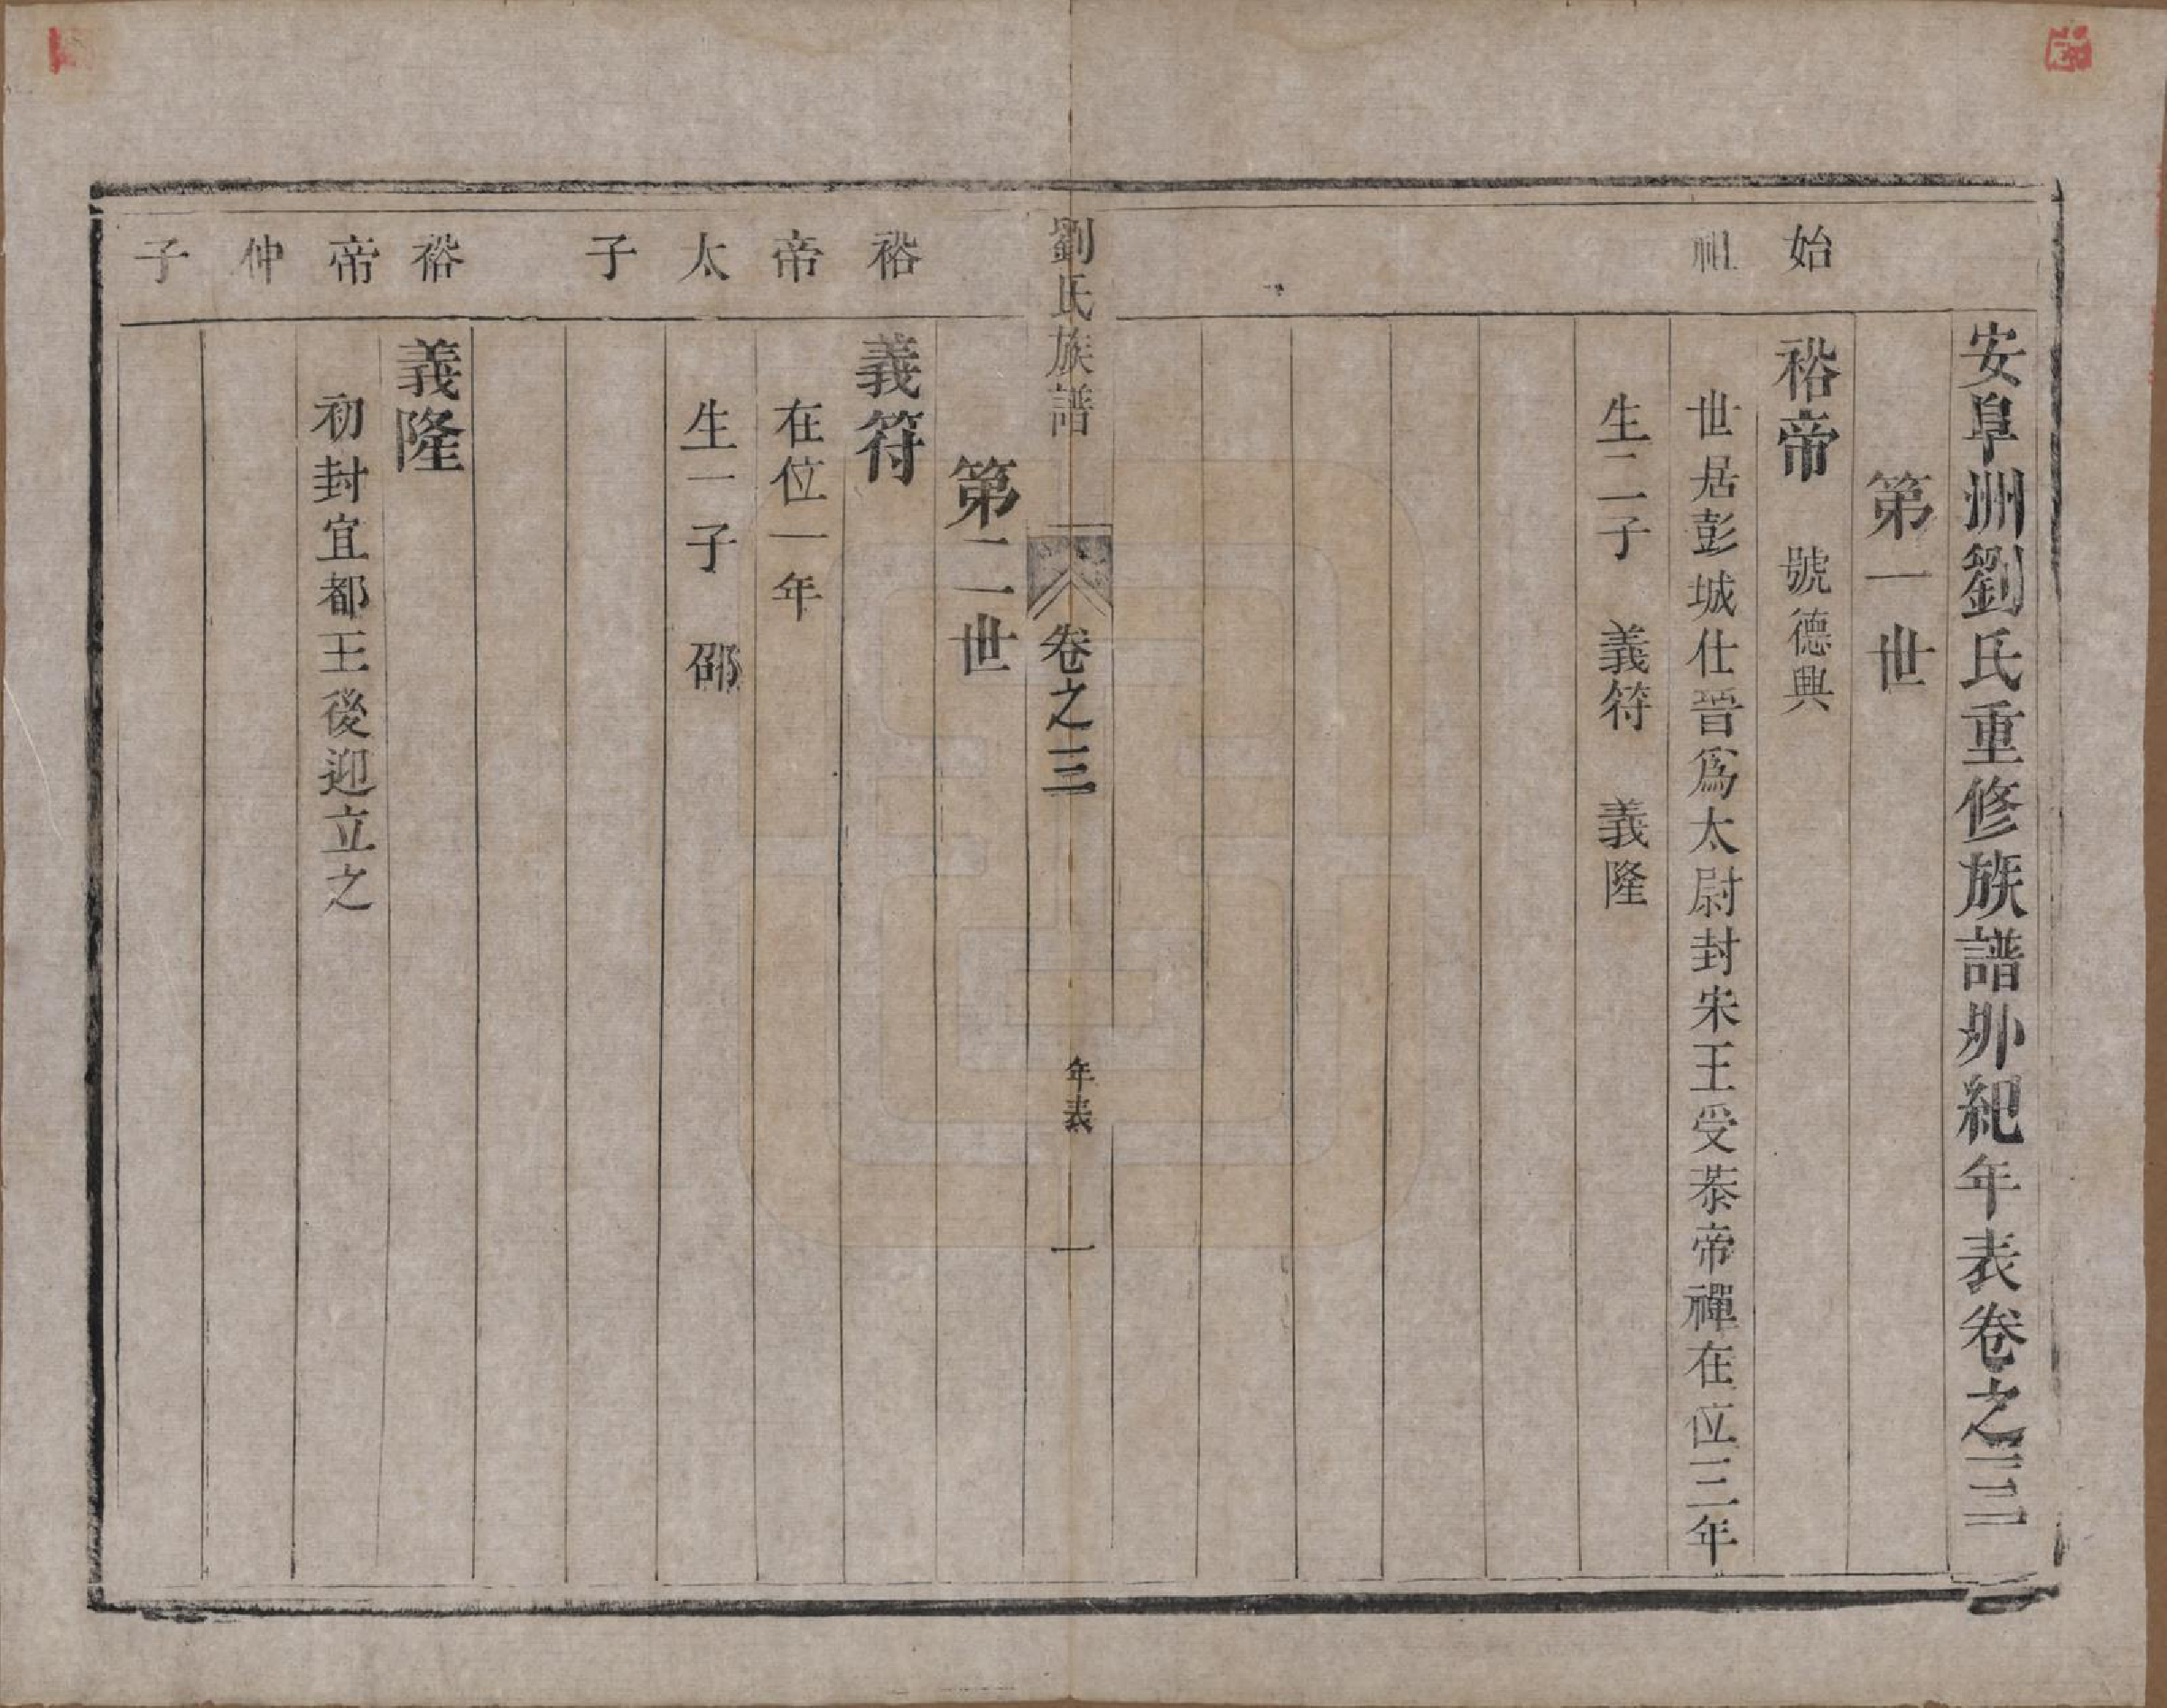 安阜洲劉氏重修族譜外紀年表卷之三
第一世
始祖
裕帝 號德興
世居彭城仕晉爲太尉封宋王受恭帝禪在位三年
生二子 義符 義隆
劉氏族譜 卷之三 年表 一
第二世
裕帝太子
義符
在位一年
生一子 邵
裕帝仲子
義隆
初封宜都王後迎立之